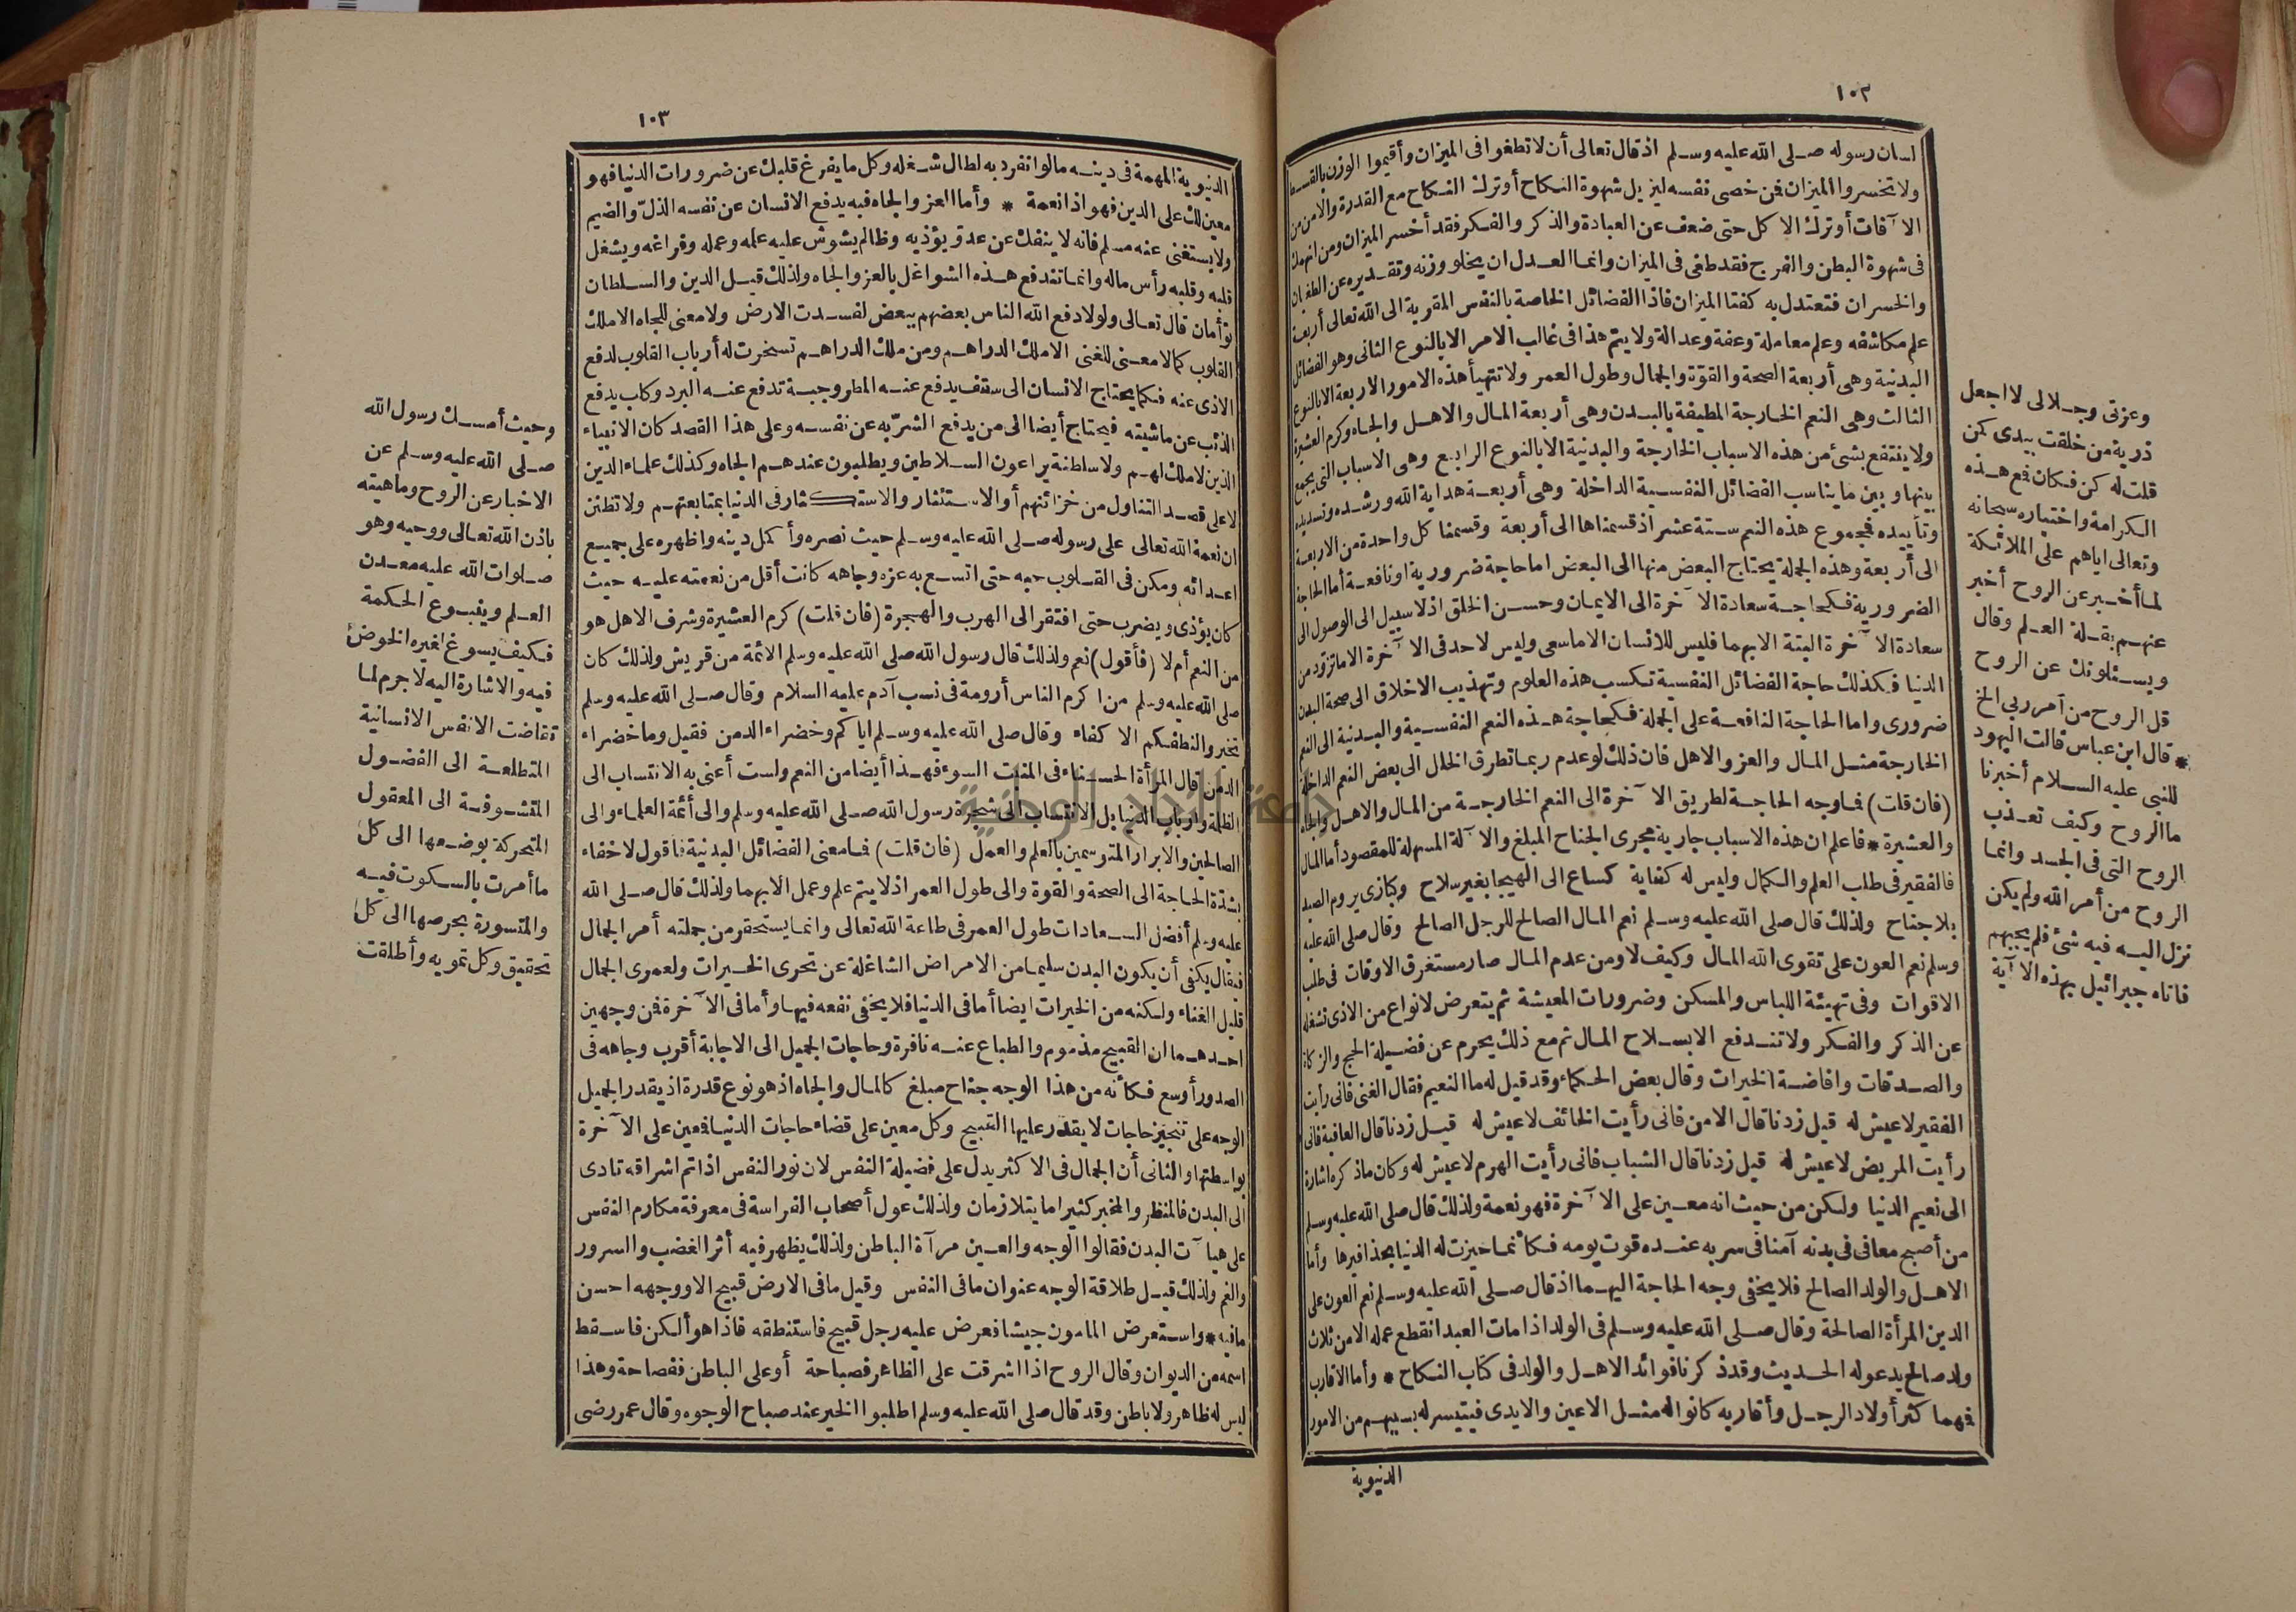 ١٠٢
لسان رسوله صلى الله عليه وسلم اذ قال تعالى أن لا تطغوا فى الميزان وأقيموا الوزن بالقسط
ولا تخسروا الميزان فمن خصى نفسه ليزيل شهوة النكاح أو ترك النكاح مع القدرة والامن من
الا آفات أو ترك الا كل حتى ضعف عن العبادة والذكر والفكر فقد أخسر الميزان ومن انهمك
فى شهوة البطن والفرج فقد طغى فى الميزان وانما العدل ان يخلو وزنه وتقديره عن الطغيان
والخسران فتعتدل به كفتا الميزان فاذا الفضائل الخاصة بالنفس المقربة الى الله تعالى أربعة
علم مكاشفه وعلم معاملة وعفة وعدالة ولا يتم هذا فى غالب الامر الا بالنوع الثانى وهو الفضائل
البدنية وهى أربعة الصحة والقوّة والجمال وطول العمر ولا تتهيأ هذه الامور الاربعة الا بالنوع
الثالث وهى النعم الخارجة المطيفة بالبدن وهى أربعة المال والاهل والجاه وكرم العشيرة
ولا ينتفع بشئ من هذه الاسباب الخارجة والبدنية الا بالنوع الرابع وهى الاسباب التى يجمع
بينها وبين ما يناسب الفضائل النفسية الداخلة وهى أربعة هداية الله ورشده وتسديده
وتأييده فمجموع هذه النعم ستة عشر اذ قسمناها الى أربعة وقسمنا كل واحدة من الاربعة
الى أربعة وهذه الجملة يحتاج البعض منها الى البعض اما حاجة ضرورية او نافعة أما الحاجة
الضرورية فكحاجة سعادة الا آخرة الى الايمان وحسن الخلق اذ لا سبيل الى الوصول الى
سعادة الا آخرة البتة الا بهما فليس للانسان الا ما سعى وليس لاحد فى الا آخرة الا ما تزود من
الدنيا فكذلك حاجة الفضائل النفسية تكسب هذه العلوم وتهذيب الاخلاق الى صحة البدن
ضرورى واما الحاجة النافعة على الجملة فكحاجة هذه النعم النفسية والبدنية الى النعم
الخارجة مثل المال والعز والاهل فان ذلك لو عدم ربما تطرق الخلل الى بعض النعم الداخلة
(فان قلت) فما وجه الحاجة لطريق الا آخرة الى النعم الخارجة من المال والاهل والجاه
والعشيرة * فاعلم ان هذه الاسباب جارية مجرى الجناح المبلغ والا آلة المسهلة للمقصود أما المال
فالفقير فى طلب العلم والكمال وليس له كفاية كساع الى الهيجا بغير سلاح وكبازى يروم الصيد
بلا جناح ولذلك قال صلى الله عليه وسلم نعم المال الصالح للرجل الصالح وقال صلى الله عليه
وسلم نعم العون على تقوى الله المال وكيف لا ومن عدم المال صار مستغرق الاوقات فى طلب
الاقوات وفى تهيئة اللباس والمسكن وضرورات المعيشة ثم يتعرض لانواع من الاذى تشغله
عن الذكر والفكر ولا تندفع الا بسلاح المال ثم مع ذلك يحرم عن فضيلة الحج والزكاة
والصدقات وافاضة الخيرات وقال بعض الحكماء وقد قيل له ما النعيم فقال الغنى فانى رأيت
الفقير لا عيش له قيل زدنا قال الامن فانى رأيت الخائف لا عيش له قيل زدنا قال العافية فانى
رأيت المريض لا عيش له قيل زدنا قال الشباب فانى رأيت الهرم لا عيش له وكان ماذكره اشارة
الى نعيم الدنيا ولكن من حيث انه معين على الا آخرة فهو نعمة ولذلك قال صلى الله عليه وسلم
من أصبح معافى فى بدنه آمنا فى سربه عنده قوت يومه فكأنما حيزت له الدنيا بحذافيرها وأما
الاهل والولد الصالح فلا يخفى وجه الحاجة اليهما اذ قال صلى الله عليه وسلم نعم العون على
الدين المرأة الصالحة وقال صلى الله عليه وسلم فى الولد اذا مات العبد انقطع عمله الا من ثلاث
ولد صالح يدعو له الحديث وقد ذكرنا فوائد الاهل والولد فى كتاب النكاح * وأما الاقارب
فهما كثر أولاد الرجل وأقاربه كانوا له مثل الاعين والايدى فيتيسر له بسببهم من الامور
الدنيوية
وعزتى وجلالى لا اجعل
ذرية من خلقت بيدى كمن
قلت له كن فكان فمع هذه
الكرامة واختياره سبحانه
وتعالى اياهم على الملائكة
لما أخبر عن الروح أخبر
عنهم بقلة العلم وقال
ويسئلونك عن الروح
قل الروح من أمر ربى الخ
* قال ابن عباس قالت اليهود
للنبى عليه السلام أخبرنا
ما الروح وكيف تعذب
الروح التى فى الجسد وانما
الروح من أمر الله ولم يكن
نزل اليه فيه شئ فلم يجبهم
فاتاه جبرائيل بهذه الا آية
١٠٣
الدنيوية المهمة فى دينه ما لو انفرد به لطال شغله وكل ما يفرغ قلبك عن ضرورات الدنيا فهو
معين لك على الدين فهو اذا نعمة * وأما العز والجاه فبه يدفع الانسان عن نفسه الذلّ والضيم
ولا يستغنى عنه مسلم فانه لا ينفك عن عدوّ يؤذيه وظالم يشوش عليه علمه وعمله وفراغه ويشغل
قلبه وقلبه رأس ماله وانما تندفع هذه الشواغل بالعز والجاه ولذلك قيل الدين والسلطان
توأمان قال تعالى ولولا دفع الله الناس بعضهم ببعض لفسدت الارض ولا معنى للجاه الا ملك
القلوب كما لا معنى للغنى الا ملك الدراهم ومن ملك الدراهم تسخرت له أرباب القلوب لدفع
الاذى عنه فكما يحتاج الانسان الى سقف يدفع عنه المطر وجبة تدفع عنه البرد وكلب يدفع
الذئب عن ماشيته فيحتاج أيضا الى من يدفع الشرّ به عن نفسه وعلى هذا القصد كان الانبياء
الذين لا ملك لهم ولا سلطنة يراعون السلاطين ويطلبون عندهم الجاه وكذلك علماء الدين
لا على قصد التناول من خزائنهم أو الاستئثار والاستكثار فى الدنيا بمتابعتهم ولا تظنن
ان نعمة الله تعالى على رسوله صلى الله عليه وسلم حيث نصره وأكمل دينه واظهره على جميع
اعدائه ومكن فى القلوب حبه حتى اتسع به عزه وجاهه كانت أقل من نعمته عليه حيث
كان يؤذى ويضرب حتى افتقر الى الهرب والهجرة (فان قلت) كرم العشيرة وشرف الاهل هو
من النعم أم لا (فأقول) نعم ولذلك قال رسول الله صلى الله عليه وسلم الائمة من قريش ولذلك كان
صلى الله عليه وسلم من اكرم الناس أرومة فى نسب آدم عليه السلام وقال صلى الله عليه وسلم
تخيروا لنطفكم الا كفاء وقال صلى الله عليه وسلم اياكم وخضراء الدمن فقيل وما خضراء
الدمن قال المرأة الحسناء فى المنبت السوء فهذا أيضا من النعم ولست أعنى به الانتساب الى
الظلمة وأرباب الدنيا بل الانتساب الى شجرة رسول الله صلى الله عليه وسلم والى أئمة العلماء والى
الصالحين والابرار المتوسمين بالعلم والعمل (فان قلت) فما معنى الفضائل البدنية فاقول لا خفاء
بشدّة الحاجة الى الصحة والقوة والى طول العمر اذ لا يتم علم وعمل الا بهما ولذلك قال صلى الله
عليه وسلم أفضل السعادات طول العمر فى طاعة الله تعالى وانما يستحقر من جملته أمر الجمال
فيقال يكفى أن يكون البدن سليما من الامراض الشاغلة عن تحرى الخيرات ولعمرى الجمال
قليل الغناء ولكنه من الخيرات ايضا أما فى الدنيا فلا يخفى نفعه فيها وأما فى الا آخرة فمن وجهين
احدهما ان القبيح مذموم والطباع عنه نافرة وحاجات الجميل الى الاجابة أقرب وجاهه فى
الصدور أوسع فكأنه من هذا الوجه جناح مبلغ كالمال والجاه اذ هو نوع قدرة اذ يقدر الجميل
الوجه على تنجيز حاجات لا يقدر عليها القبيح وكل معين على قضاء حاجات الدنيا فمعين على الا آخرة
بواسطتها والثانى أن الجمال فى الا كثر يدل على فضيلة النفس لان نور النفس اذا تم اشراقه تادى
الى البدن فالمنظر والمخبر كثيرا ما يتلازمان ولذلك عول أصحاب الفراسة فى معرفة مكارم النفس
على هيا آت البدن فقالوا الوجه والعين مرآة الباطن ولذلك يظهر فيه أثر الغضب والسرور
والغم ولذلك قيل طلاقة الوجه عنوان ما فى النفس وقيل ما فى الارض قبيح الا ووجهه احسن
ما فيه * واستعرض المامون جيشا فعرض عليه رجل قبيح فاستنطقه فاذا هو ألكن فاسقط
اسمه من الديوان وقال الروح اذا اشرقت على الظاهر فصباحة أو على الباطن ففصاحة وهذا
ليس له ظاهر ولا باطن وقد قال صلى الله عليه وسلم اطلبوا الخير عند صباح الوجوه وقال عمر رضى
وحيث أمسك رسول الله
صلى الله عليه وسلم عن
الاخبار عن الروح وماهيته
باذن الله تعالى ووحيه وهو
صلوات الله عليه معدن
العلم وينبوع الحكمة
فكيف يسوغ لغيره الخوض
فيه والاشارة اليه لا جرم لما
تقاضت الانفس الانسانية
المتطلعة الى الفضول
المتشوفة الى المعقول
المتحركة بوضعها الى كل
ما أمرت بالسكوت فيه
والمتسورة بحرصها الى كل
تحقيق وكل تمويه وأطلقت
جامعة النجاح الوطنية